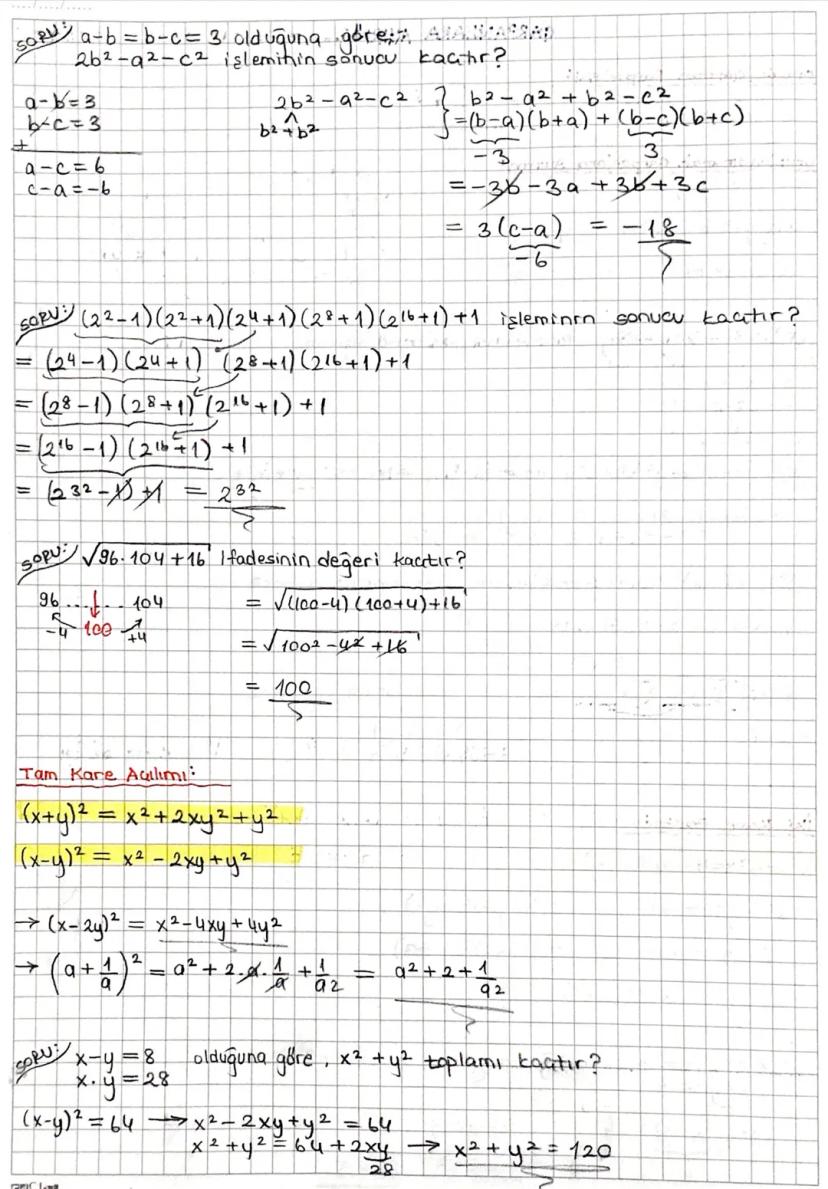 SORU: a-b = b-c = 3 olduğuna göre;
2b² - a² - c² işleminin sonucu kaçtır?
a-b = 3
b-c = 3
+
a-c = 6
c-a = -6
2b² - a² - c²
b² + b²
} b² - a² + b² - c²
= (b-a)(b+a) + (b-c)(b+c)
-3 3
= -3b - 3a + 3b + 3c
= 3(c-a) = -18
-6
SORU: (2²-1)(2²+1)(2⁴+1)(2⁸+1)(2¹⁶+1)+1 işleminin sonucu kaçtır?
= (2⁴-1)(2⁴+1) (2⁸+1)(2¹⁶+1)+1
= (2⁸-1)(2⁸+1)(2¹⁶+1)+1
= (2¹⁶-1)(2¹⁶+1)+1
= (2³²-1)+1 = 2³²
SORU: √96.104+16 ifadesinin değeri kaçtır?
96 ... ↓ ... 104
-4 100 +4
= √(100-4)(100+4)+16
= √100² - 4² + 16
= 100
Tam Kare Açılımı:
(x+y)² = x² + 2xy² + y²
(x-y)² = x² - 2xy + y²
→ (x-2y)² = x² - 4xy + 4y²
→ (a + 1/a)² = a² + 2.a.1/a + 1/a² = a² + 2 + 1/a²
SORU: x-y = 8 olduğuna göre, x² + y² toplamı kaçtır?
x.y = 28
(x-y)² = 64 → x² - 2xy + y² = 64
x² + y² = 64 + 2xy → x² + y² = 120
28